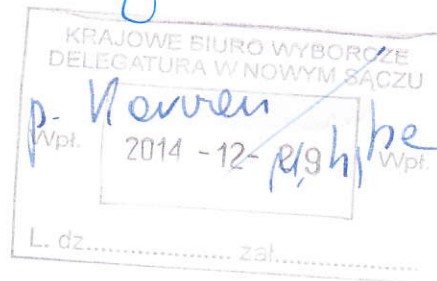 KRAJOWE BIURO WYBORCZE
DELEGATURA W NOWYM SĄCZU
p.
Wpł. 2014 -12- 29 Wpł.
L. dz. zał.